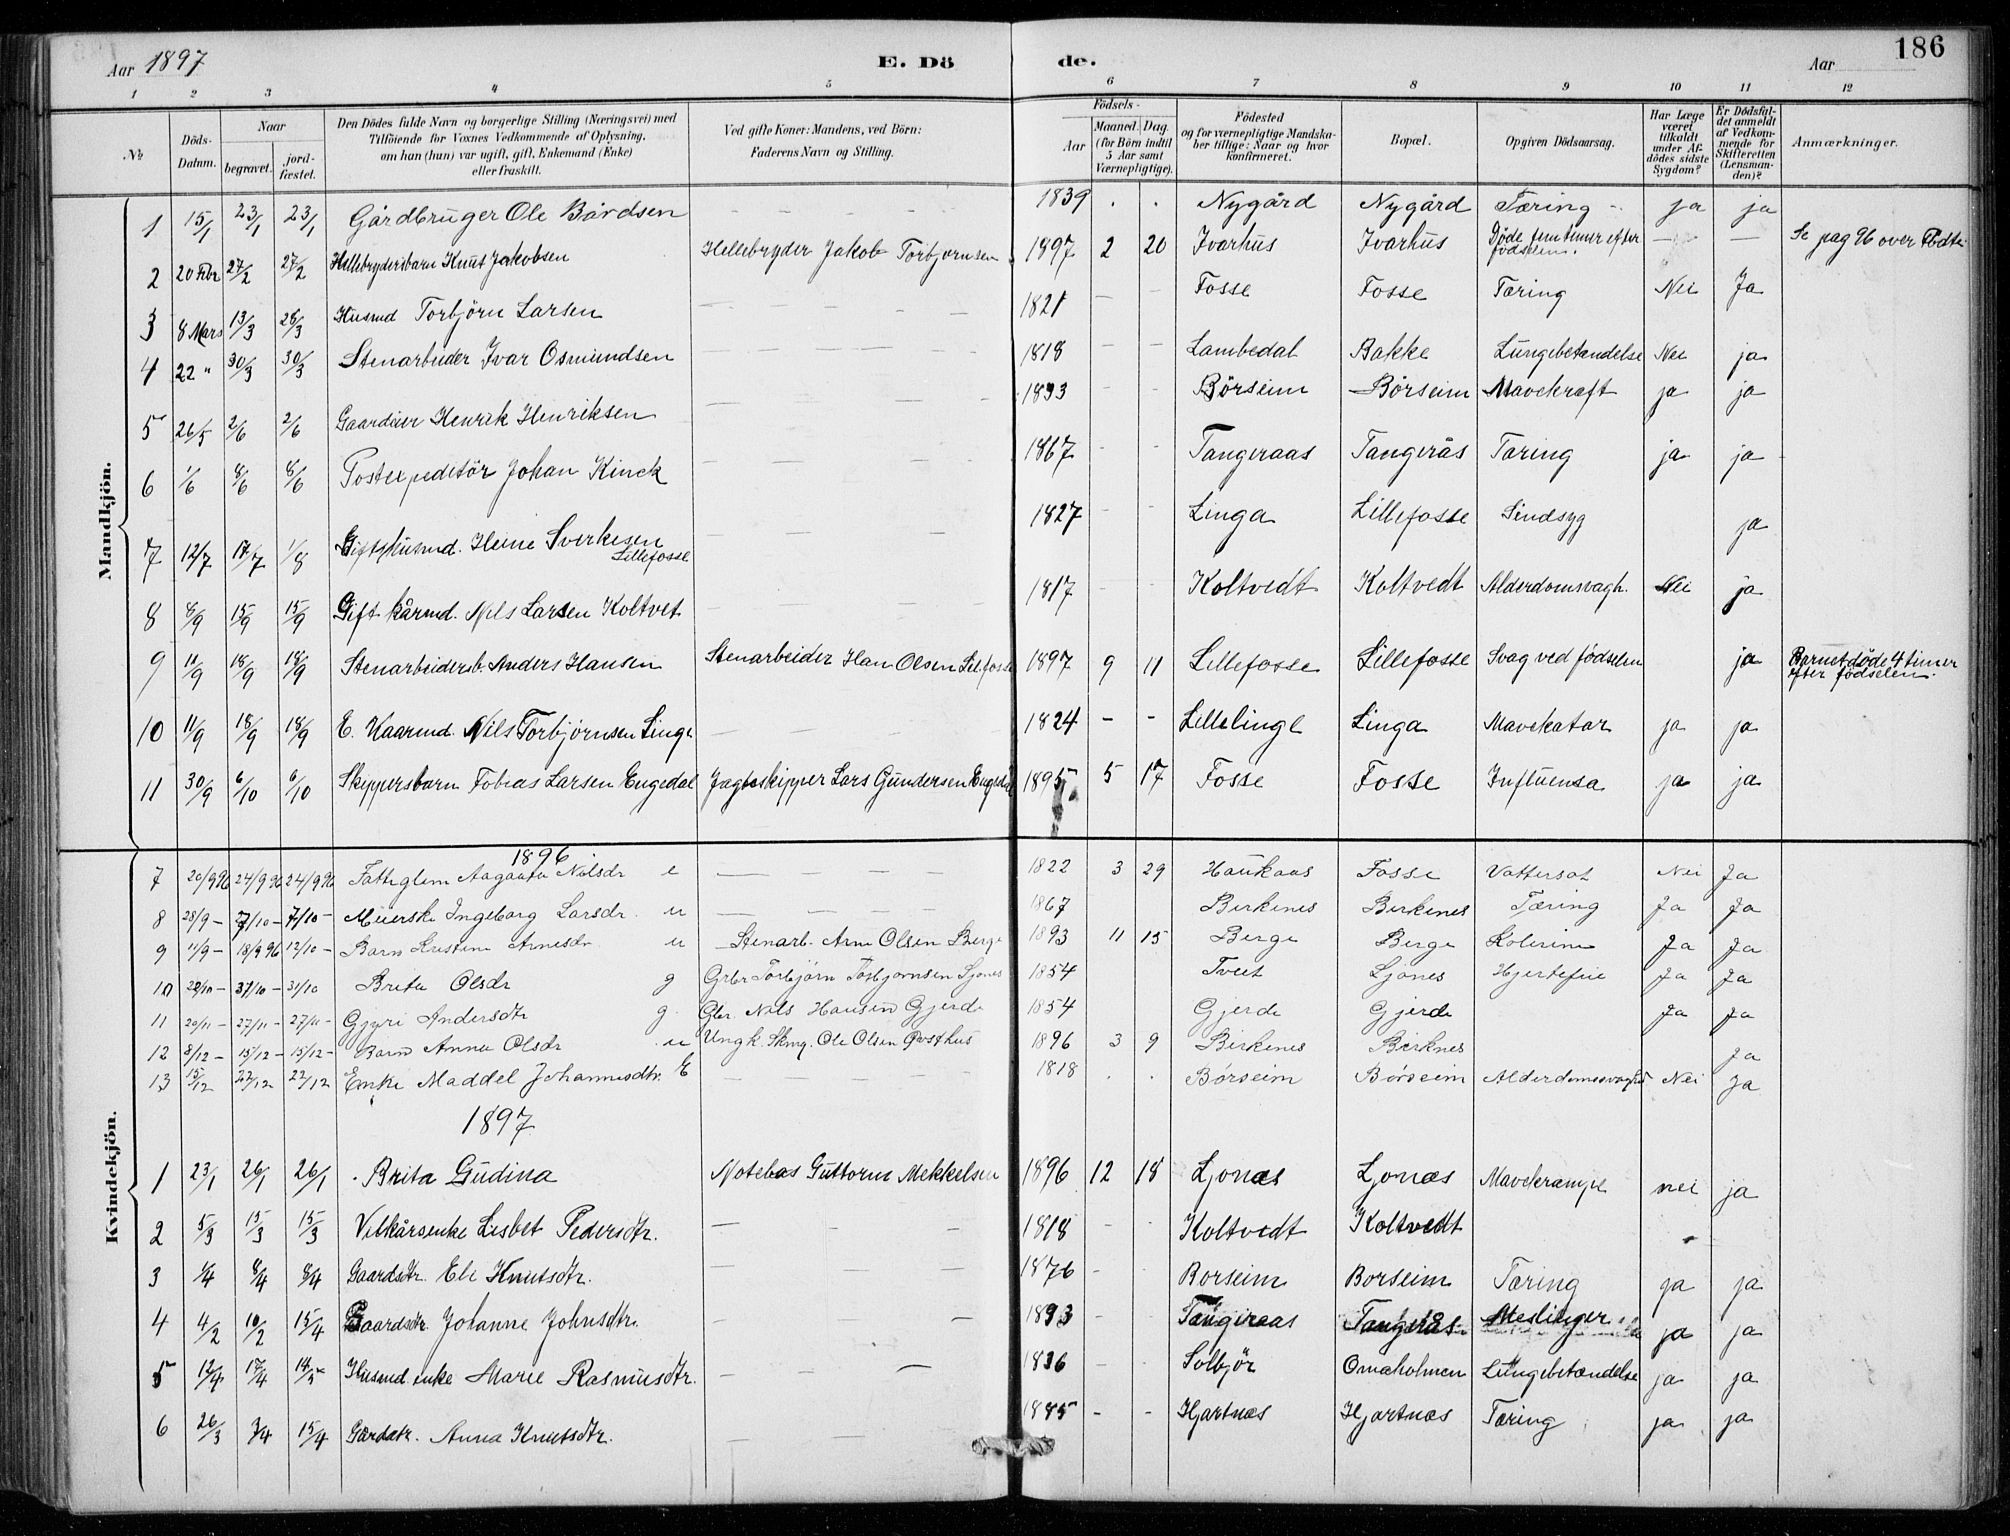 Aar 1897 E. Döde. Aar 186
1 2 3 4 5 6 7 8 9 10 11 12
No. Döds-Datum. Naar begravet. jordfæstet. Den Dödes fulde Navn og borgerlige Stilling (Næringsvei) med Tilföiende for Voxnes Vedkommende af Oplysning, om han (hun) var ugift, gift, Enkemand (Enke) eller fraskilt. Ved gifte Koner: Mandens, ved Börn: Faderens Navn og Stilling. Födsels- Aar Maaned. Dag. (for Börn indtil 5 Aar samt Værnepligtige). Födested og for værnepligtige Mandskaber tillige: Naar og hvor konfirmeret. Bopæl. Opgiven Dödsaarsag. Har Læge været tilkaldt under Afdödes sidste Sygdom? Er Dödsfaldet anmeldt af Vedkommende for Skifteretten (Lensmanden)? Anmærkninger.
Mandkjön.
1 15/1 23/1 23/1 Gårdbruger Ole Bårdsen 1839 Nygård Nygård Tæring ja ja
2 20 Febr 27/2 27/2 Hellebrydersbarn Knut Jakobsen Hellebryder Jakob Torbjørnsen 1897 2 20 Ivarhus Ivarhus Döde fem timer efter födselen. — — Se pag 96 over Födte
3 8 Mars 13/3 28/3 Husmd Torbjörn Larsen 1821 Fosse Fosse Tæring Nei Ja
4 22 " 30/3 30/3 Stenarbeider Ivar Osmundsen 1818 Lambedal Bakke Lungebetændelse Nei ja
5 26/5 2/6 2/6 Gaardeier Henrik Henriksen 1833 Börseim Börseim Mavekræft ja ja
6 1/6 8/6 8/6 Postexpeditör Johan Kinck 1867 Tangeraas Tangerås Tæring ja ja
7 12/7 17/7 1/8 Gift Husmd. Heine Sverkesen Lillefosse 1827 Linga Lillefosse Sindsyg ja
8 8/9 15/9 15/9 Gift kårmd. Nils Larsen Koltvet 1817 Koltvedt Koltvedt Alderdomsvagh. Nei ja
9 11/9 18/9 18/9 Stenarbeidersb. Anders Hansen Stenarbeider Han Olsen Lillefosse 1897 9 11 Lillefosse Lillefosse Svag ved födselen ja Barnet döde 4 timer efter födselen.
10 11/9 18/9 18/9 E. Kaarmd. Nils Torbjørnsen Linge 1824 - - Lillelinge Linga Mavekatar ja ja
11 30/9 6/10 6/10 Skippersbarn Tobias Larsen Engedal Jagteskipper Lars Gundersen Engedal 1895 5 17 Fosse Fosse Influensa ja ja
Kvindekjön.
1896
7 20/9 96 24/9 96 24/9 96 Fattiglem Aagaata Nilsdr e 1822 3 29 Haukaas Fosse Vattersot Nei Ja
8 28/9 - 7/10 - 7/10 - Meierske Ingeborg Larsdr. u 1867 Birkenes Birkenes Tæring Ja Ja
9 11/9 - 18/9 96 12/10 - Barn Kristine Arnesdr u Stenarb. Arne Olsen Berge 1893 11 15 Berge Berge Kolerine Ja Ja
10 28/10 - 31/10 - 31/10 Brita Olsdr g Grbr Torbjörn Torbjornsen Ljones 1854 Tveit Ljones Hjertefeil Ja Ja
11 20/11 - 27/11 - 27/11 - Gjyri Andersdtr g. Gbr. Nils Hansen Gjerde 1854 Gjerde Gjerde Ja Ja
12 8/12 - 15/12 - 15/12 - Barn Anna Olsdr u Ungk. Skmg. Ole Olsen Posthus 1896 3 9 Birkenes Birknes Ja
13 15/12 22/12 22/12 Enke Maddel Johannesdtr. E 1818 Börseim Börseim Alderdomssvaghed Nei Ja
1897
1 23/1 26/1 26/1 Brita Gudina Notebas Guttorm Mekkelsen 1896 12 18 Ljonæs Ljonæs Mavekrampe nei ja
2 5/3 15/3 15/3 Vilkårsenke Lisbet Pedersdtr. 1818 Koltvedt Koltvedt
3 1/4 8/4 8/4 Gaardsdtr. Eli Knutsdtr. 1876 Borseim Borseim Tæring ja ja
4 4/2 10/2 15/4 Gaardsdtr. Johanne Johnsdtr. 1893 Tangeraas Tangerås Meslinger ja ja
5 12/4 17/4 14/5 Husmd enke Marie Rasmusdtr. 1836 Solbjör Omaholmen Lungebetændelse ja ja
6 26/3 3/4 15/4 Gårdsdtr. Anna Knutsdtr. 1885 - - Hjartnæs Hjartnæs Tæring ja ja